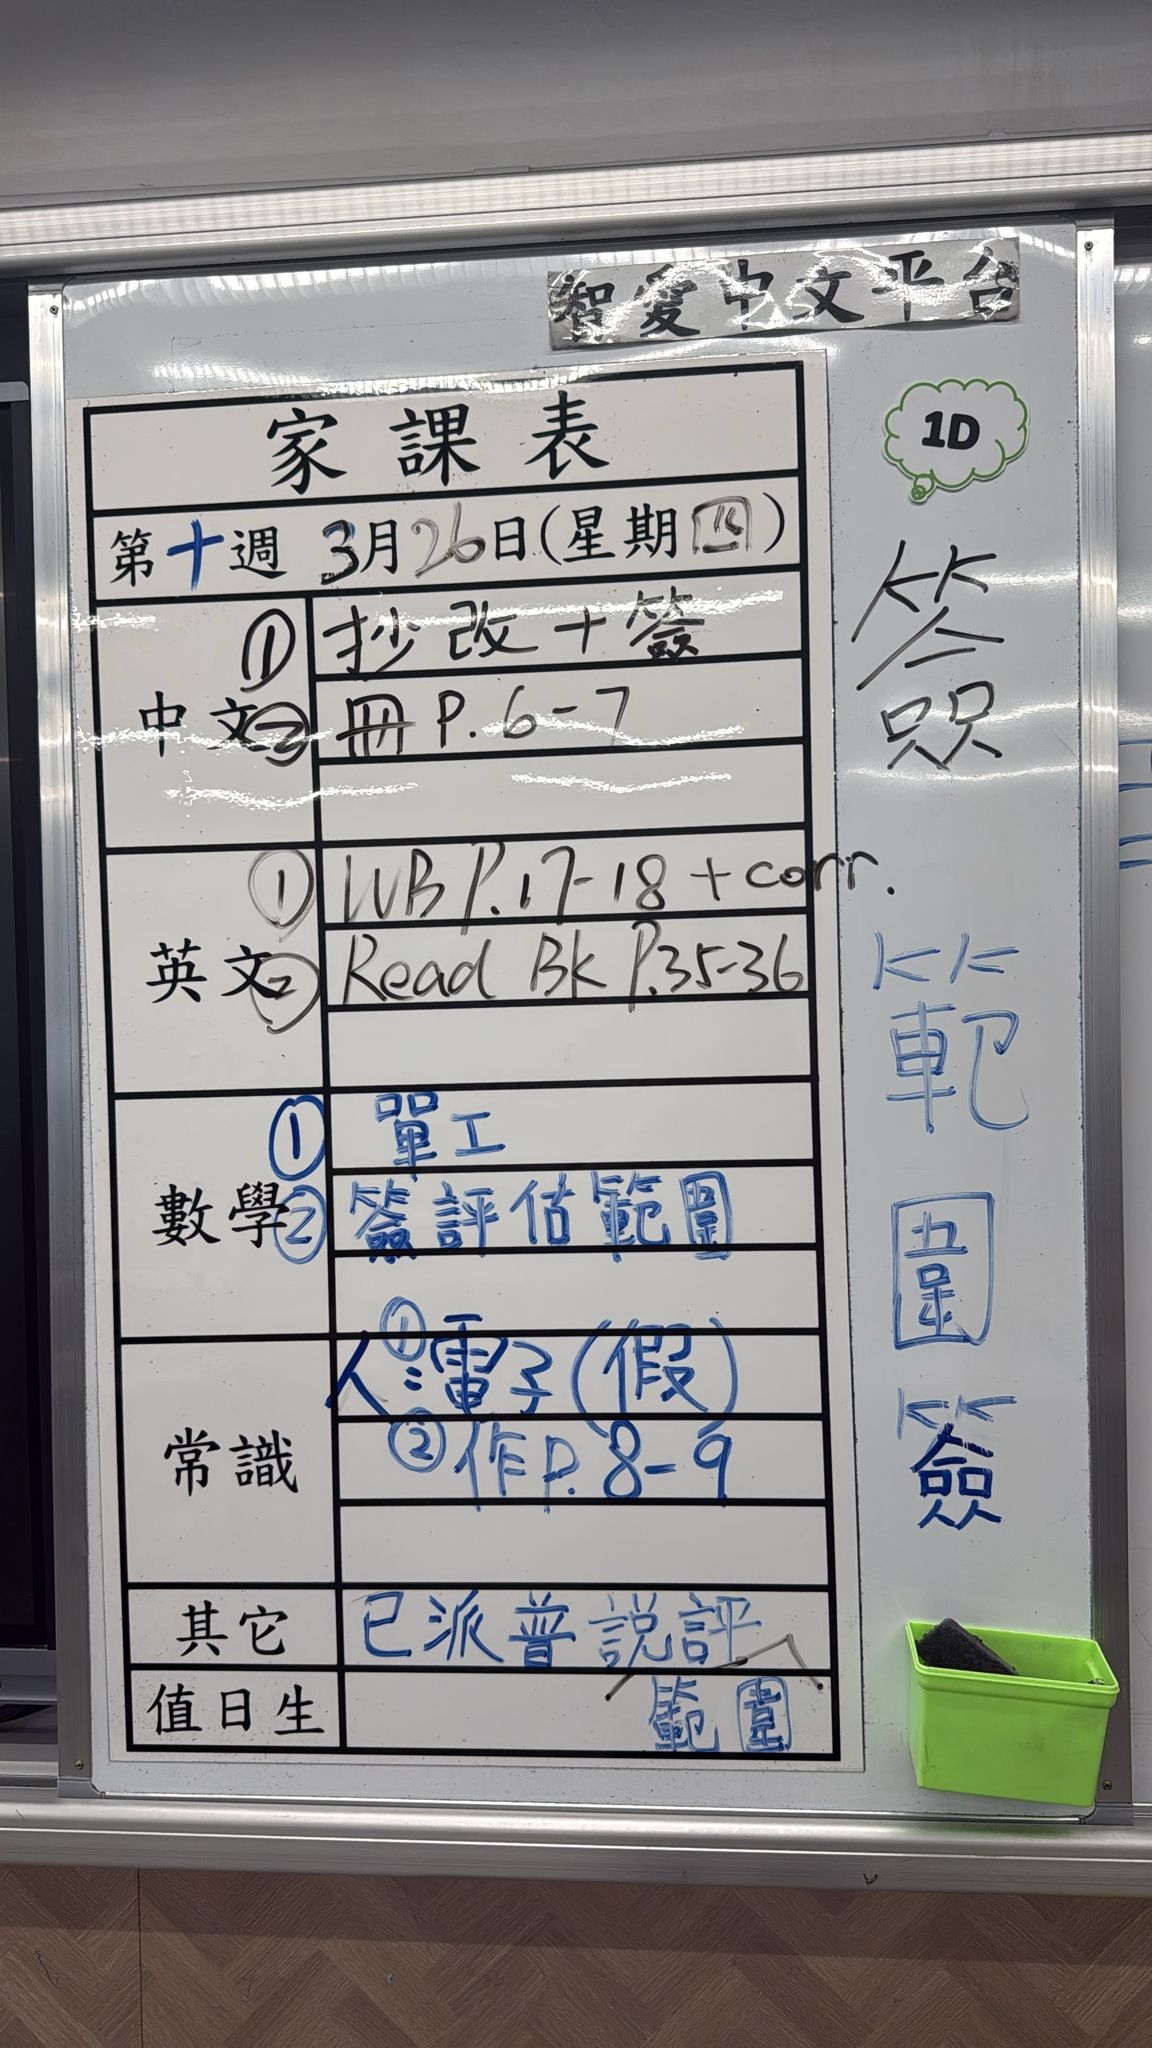 智愛中文平台
1D
家課表
第十週 3月26日(星期四)
中文
① 抄改+簽
② 冊 P.6-7
英文
① WB P.17-18 + corr.
② Read BK P.35-36
數學
① 單工
② 簽評估範圍
常識
人:①電子(假)
② 作P.8-9
其它
已派普說評
範圍
值日生
簽
範
圍
簽